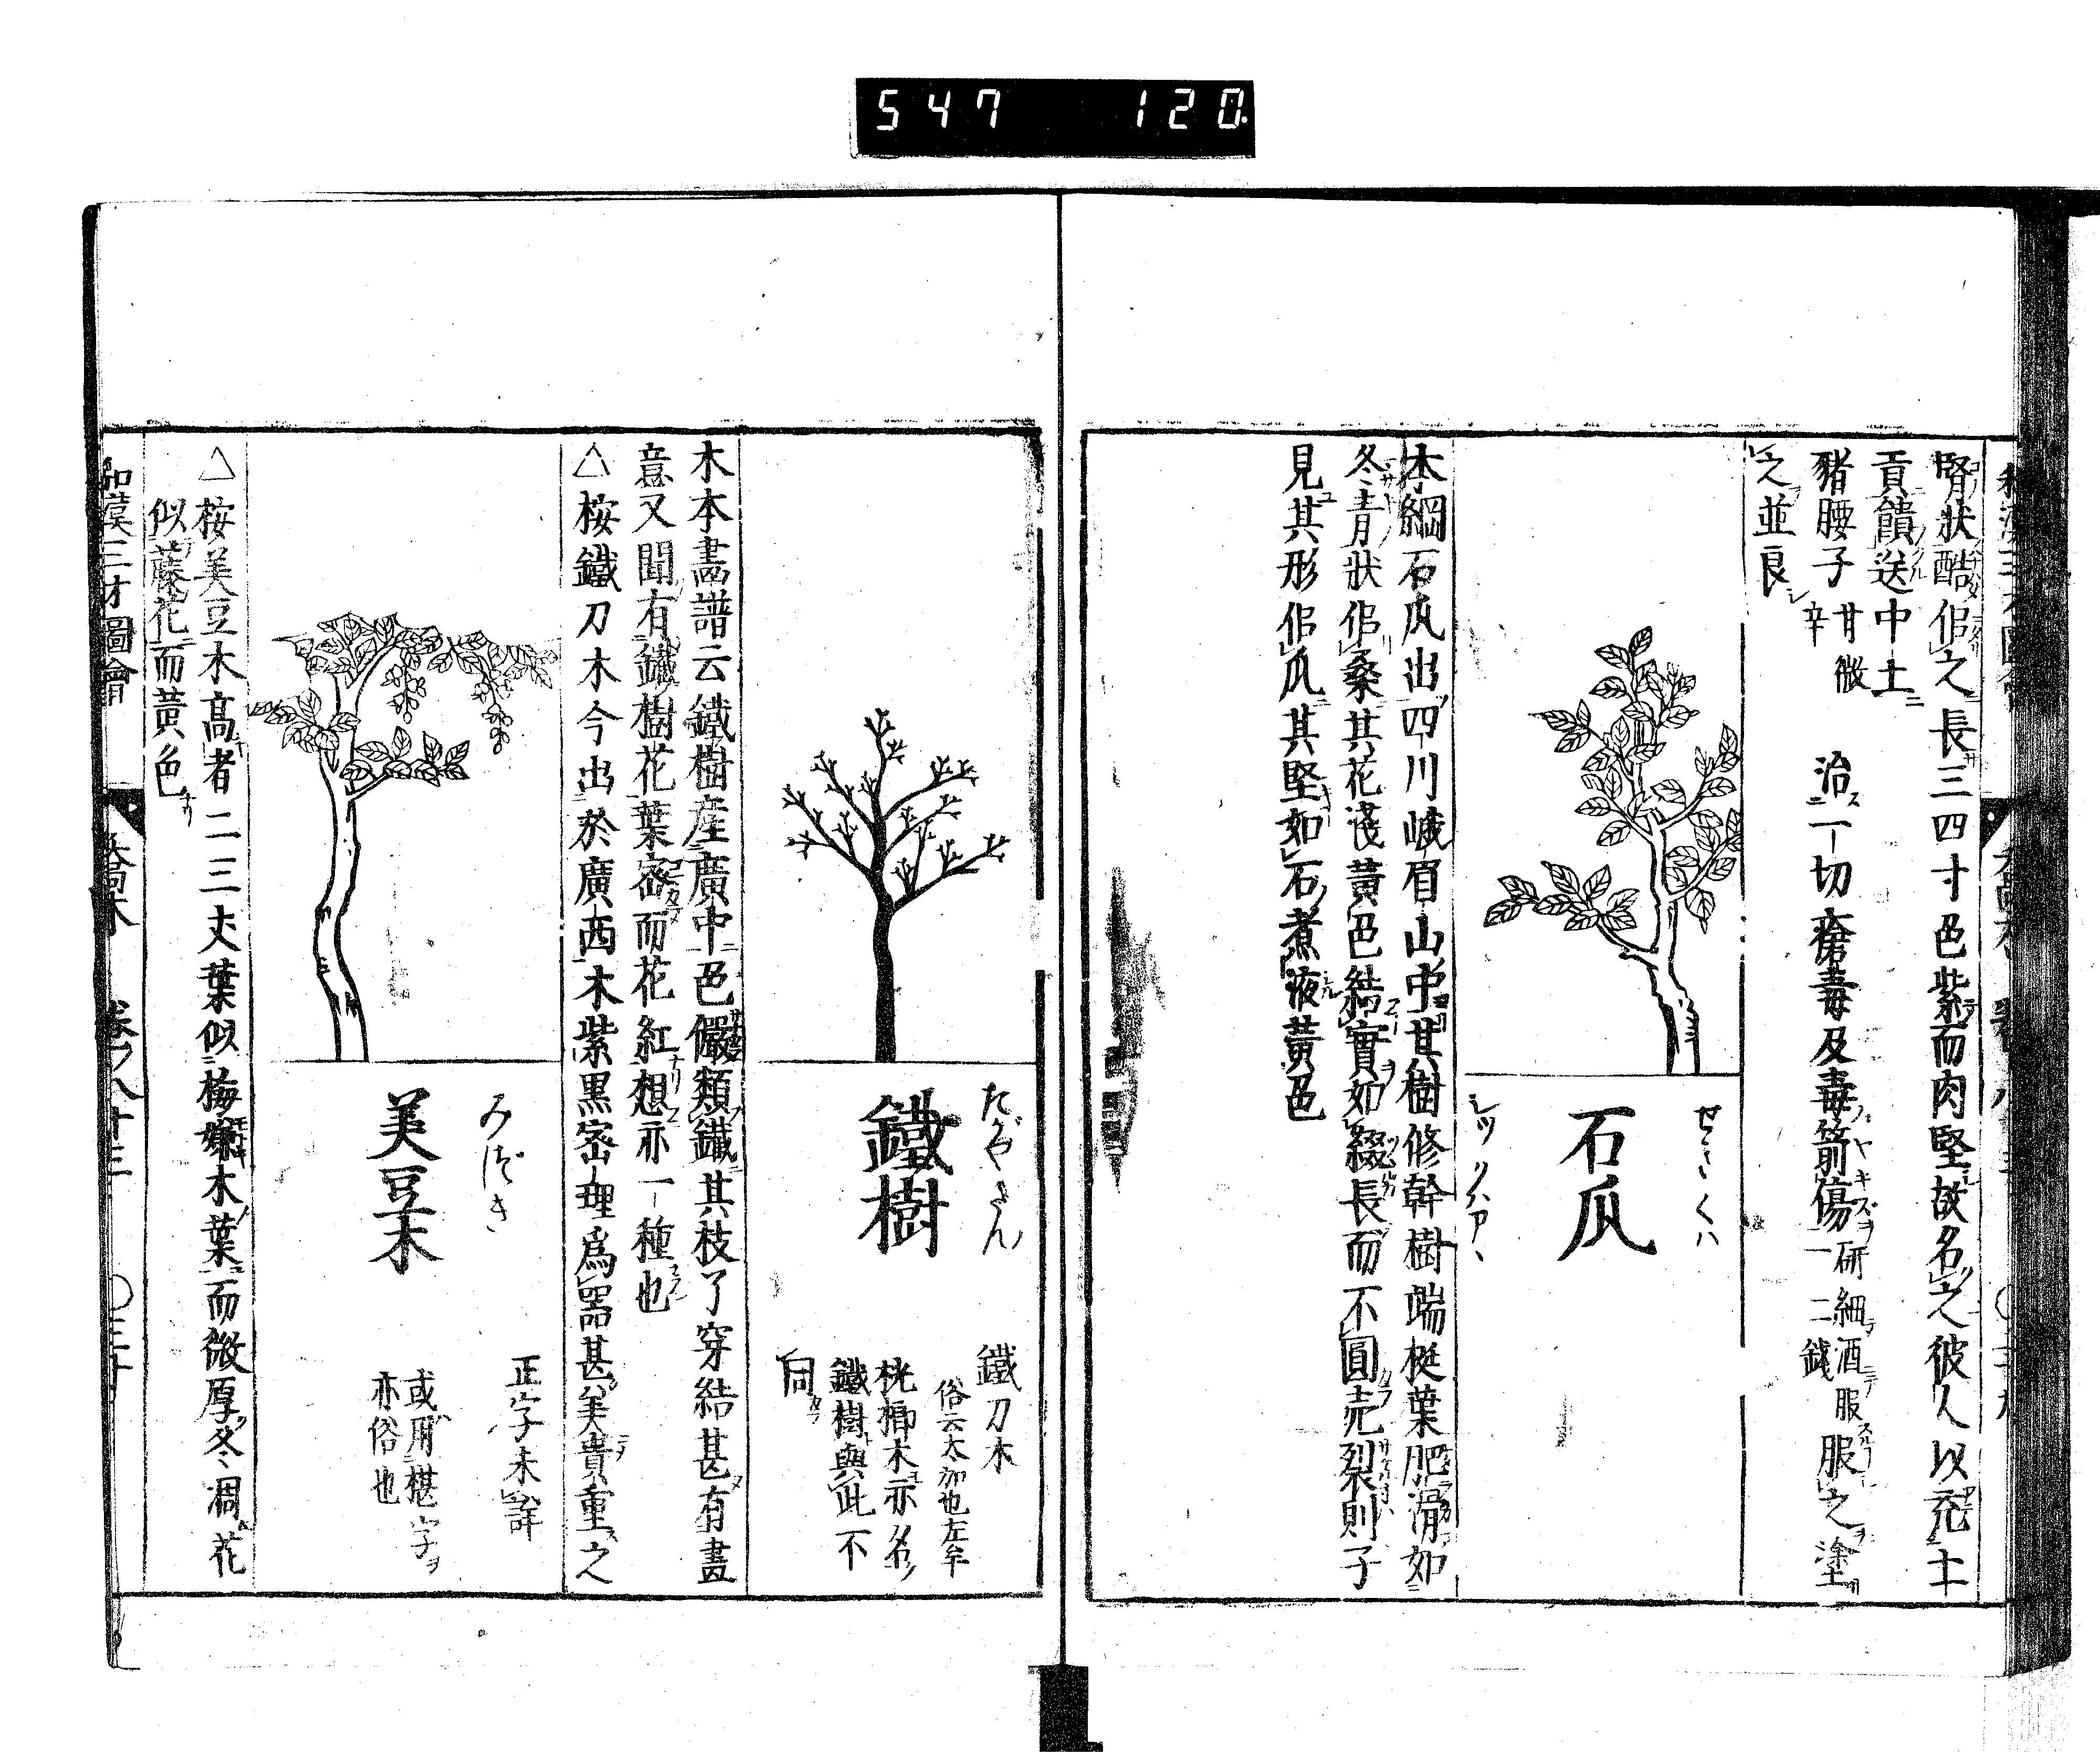 547 120
腎狀酷佀之長三四寸色紫而肉堅故名之彼人以充土
貢饋送中土
豬腰子甘微辛 治一切瘡毒及毒箭傷研細酒服一二錢服之塗
之並良
石瓜
木綱石瓜出四川峨眉山中其樹修幹樹端挺葉肥滑如
冬青狀佀桑其花淺黃色結實如綴長而不圓売裂則子
見其形佀瓜其堅如石煮液黃色
たがやさん
鐵樹
鐵刀木
俗云太加也左牟
桄榔木亦名
鐵樹與此不
同
木本畵譜云鐵樹産廣中色儼類鐵其枝了穿結甚有畫
意又聞有鐵樹花葉密而花紅想亦一種也
△桉鐵刀木今出於廣西木紫黒密理爲噐甚美貴重之
みづき
美豆木
正字未詳
或用椹字
亦俗也
△桉美豆木髙者二三丈葉似梅嫌木葉而微厚冬凋花
似藤花而黃色
和漢三才圖會 喬木 卷ノ八十三 〇三十